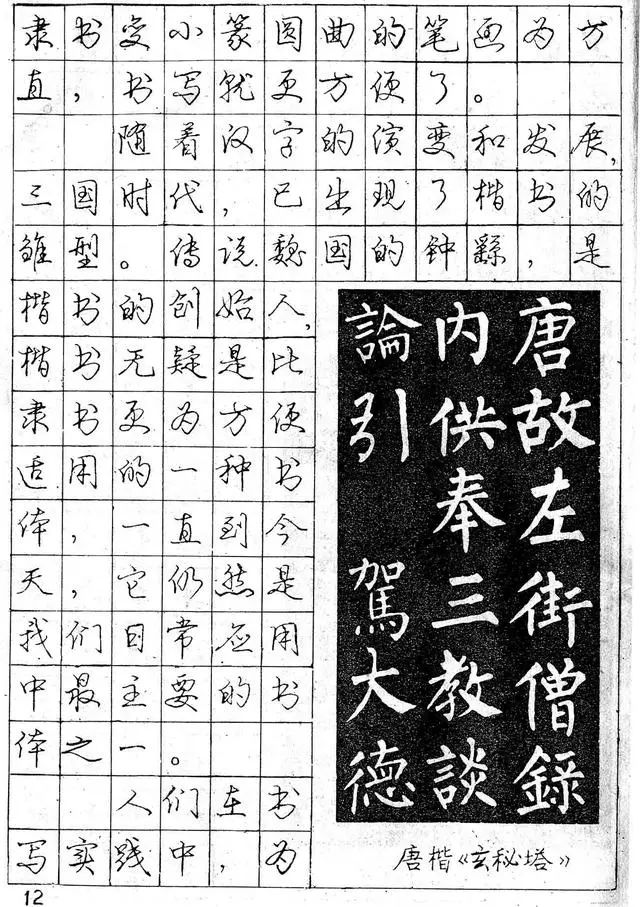 隶书变小篆圆曲的笔画为方
直，书写就更方便了。
随着汉字的演变和发展，
三国时代，已出现了楷书的
雏型。传说魏国的钟繇，是
楷书的创始人，
楷书无疑是比
隶书更为方便
适用的一种书
体，一直到今
天，它仍然是
我们日常应用
中最主要的书
体之一。
人们在书
写实践中，为
唐故左街僧錄
内供奉三教談
論引駕大德
唐楷《玄秘塔》
12